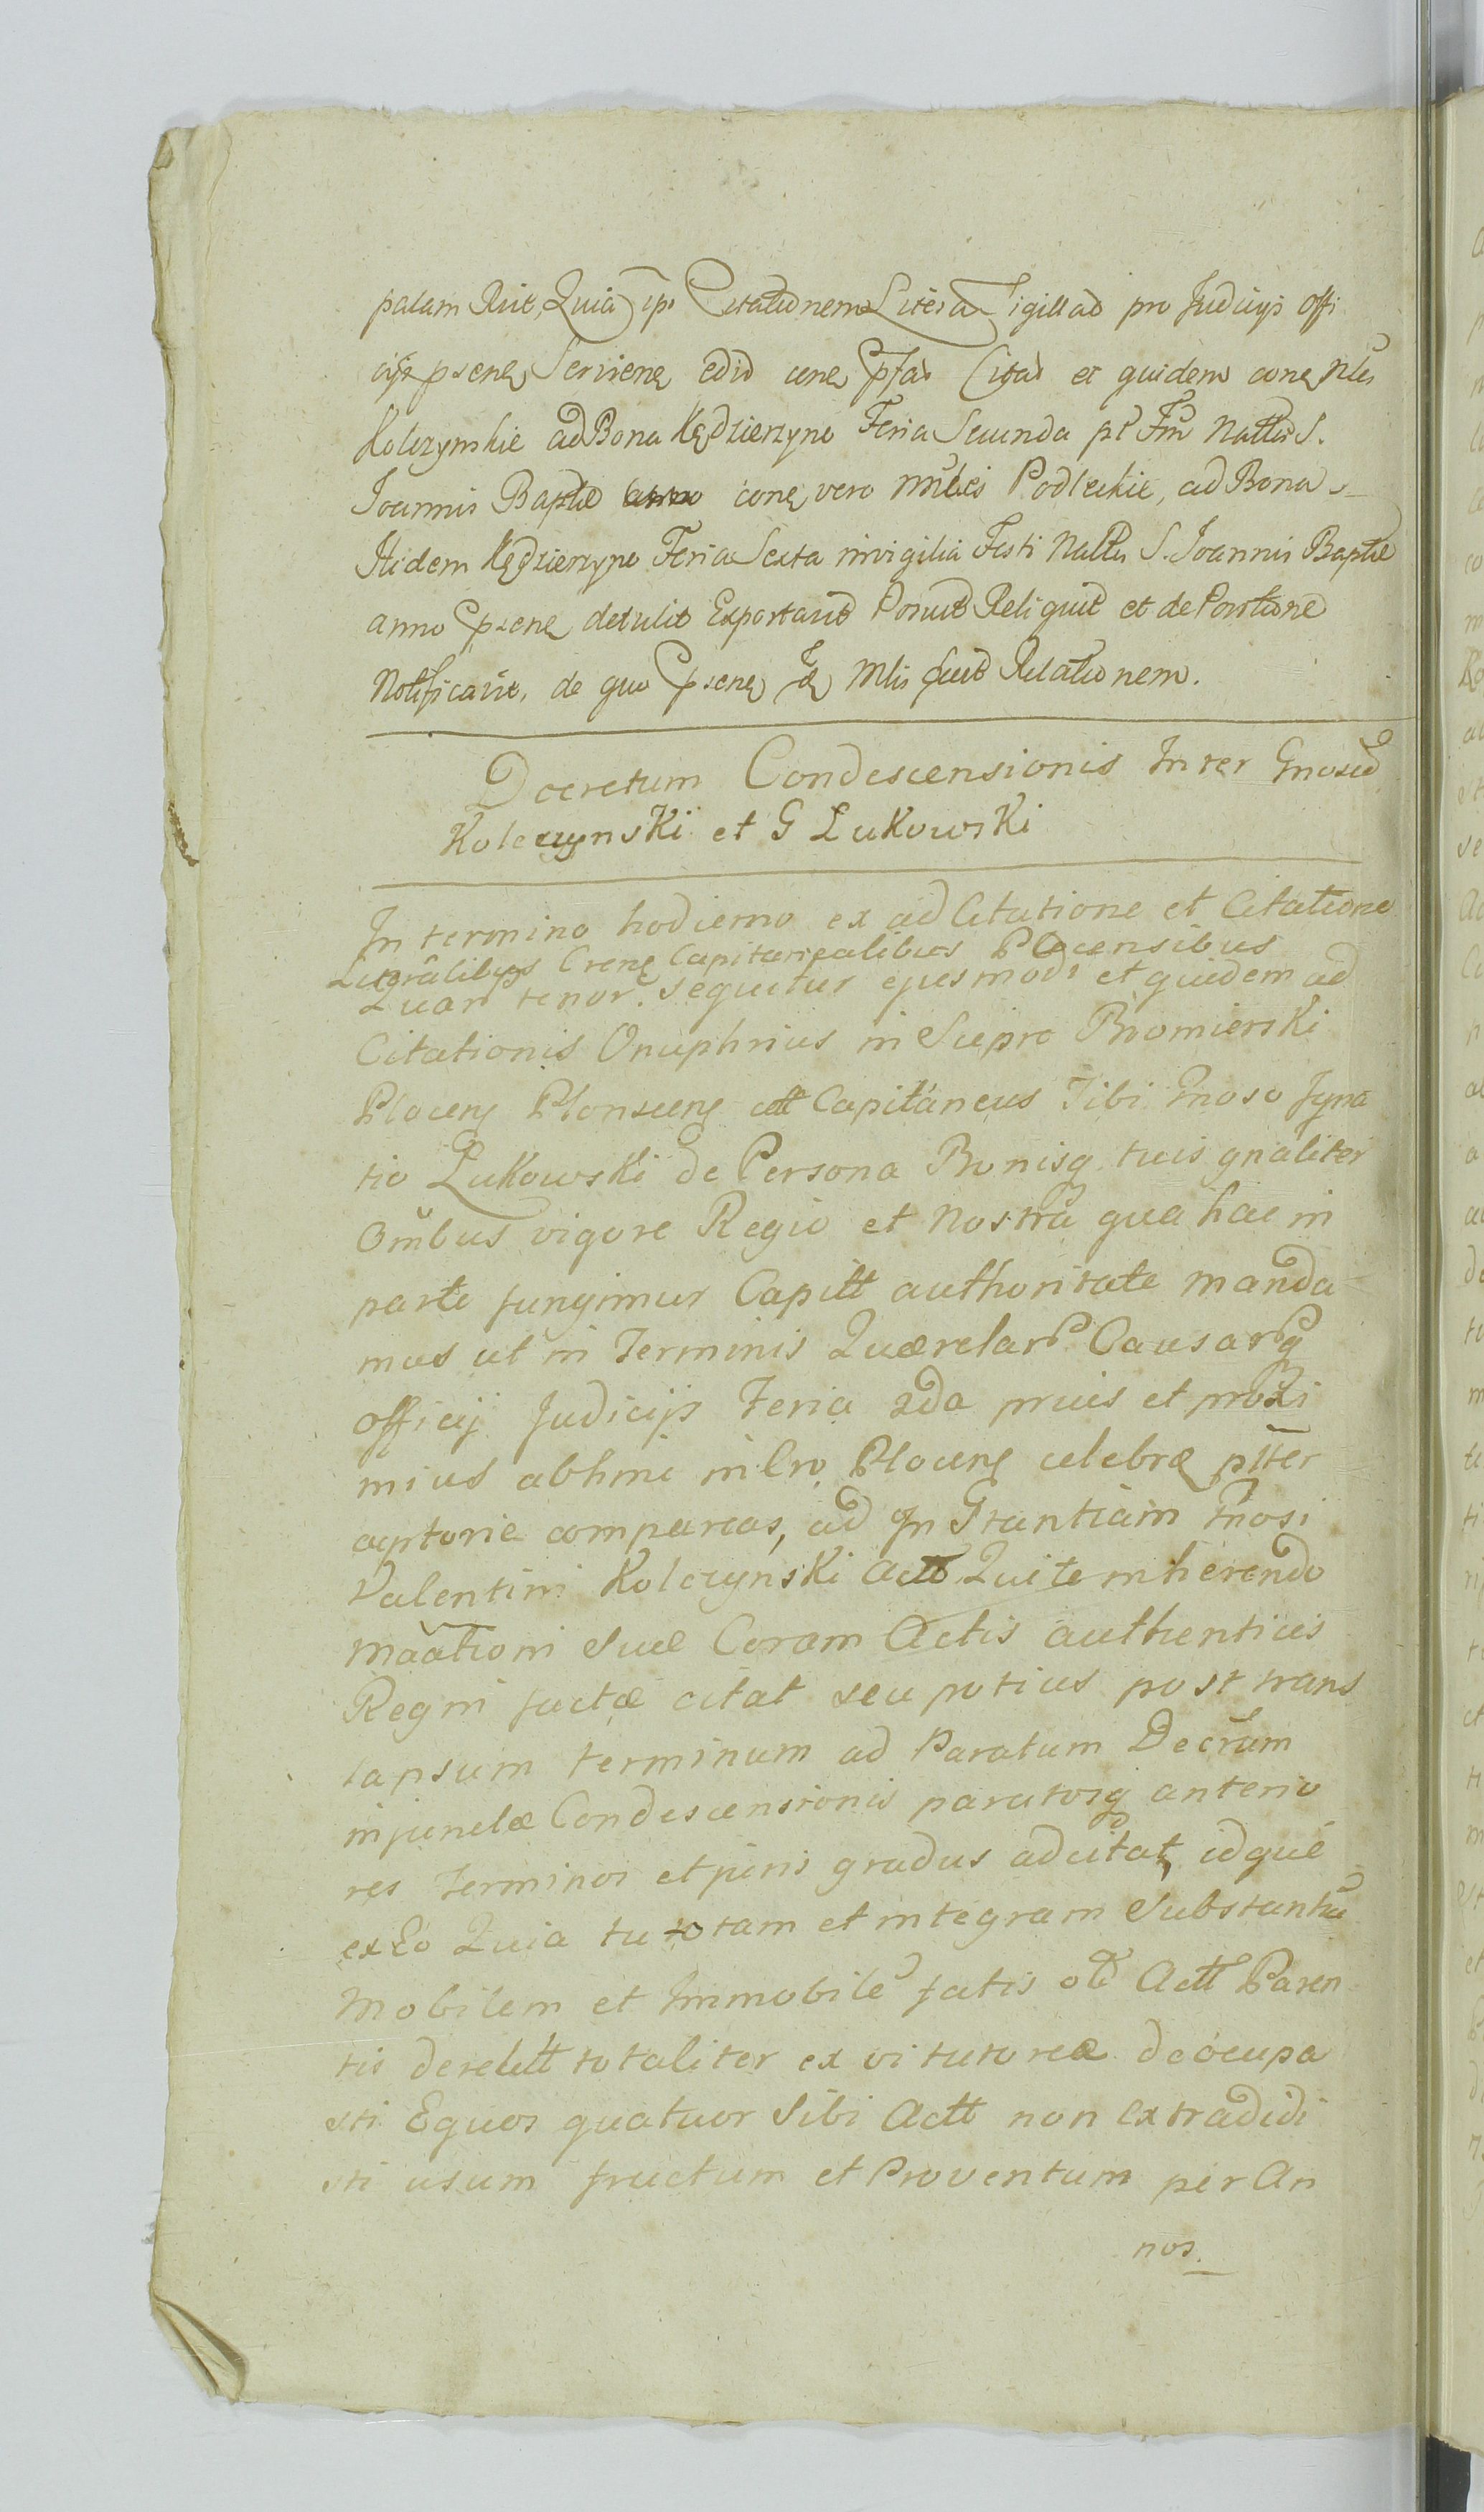 palam Rnit, Quia ips Citationem Litera Sigillad pro Judicijs Offi
cijs psens Serviens edid cone pfas Citat et quidem cone Nles
Kolczynskie ad Bona Kędzierzyno Feria Secunda pt Fm Nattis S.
Joannis Baptæ cone vero Nubes Podleckie, ad Bona
Itidem Kędzierzyno Feria Sexta in vigilia Festi Nattis S. Joannis Baptæ
anno psene detulit Exportavit Ponuit Reliquit et de Positione
Notificavit, de quo psene Mlis fecit Relationem.
Decretum Condescensionis Inter Gnosud
Kolczynski et G Łukowski
In termino hodierno ex ad Citatione et Citatione
Litralibus Crene Capitanealibus Plocensibus
Quar tenor sequitur ejusmodi et quidem ad
Citationis Onuphrius in Siepro Bromierski
Plocens Plonscens ett Capitaneus Tibi Gnoso Jgna
tio Łukowski de Persona Bonisq tuis gnaliter
Ombus vigore Regio et Nostra qua hac in
parte fungimur Capitt authoritate manda
mus ut in Terminis Quærelar Causarq
officij Judicijs Feria 2da prius et proxi
mius abhinc in Cro Plocens celebræ ptter
acptorie compareas, ad Jn Stantiam Gnosi
Valentini Kolczynski Actt Qui te inhærendo
Maationi Suæ Coram Actis authenticis
Regni factæ citat seu potius post trans
lapsum terminum ad Paratum Decrum
injunctæ Condescensionis paratosq anterio
res Terminos et juris gradus adcitat, idque
ex Eo Quia tu totam et integram Substantia
Mobilem et Immobile fatis ol Actt Paren
tis derelitt totaliter ex vi tutoreæ deocupa
sti Equos quatuor Sibi Actt non extradidi
sti usum fructum et Proventum per An
nos.